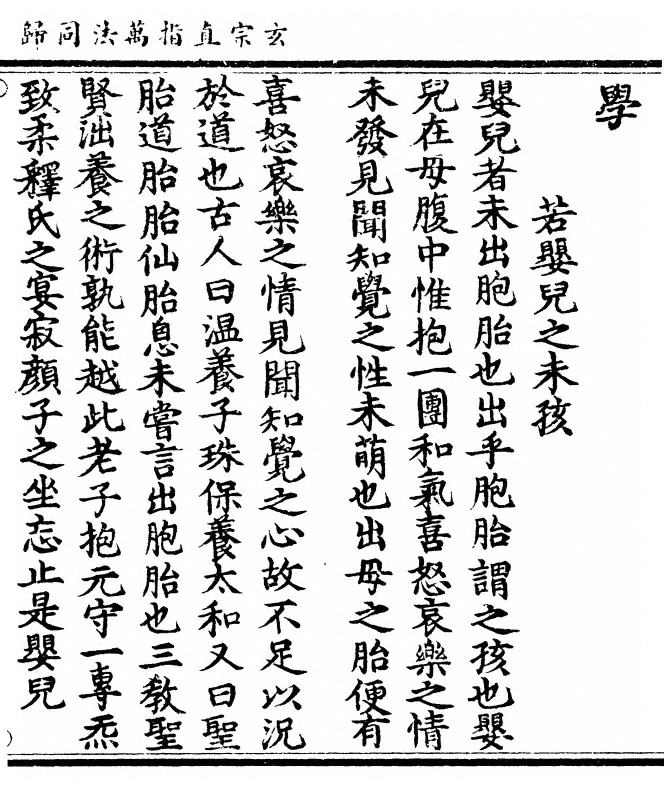 玄宗直指萬法同歸
學
若嬰兒之未孩
嬰兒者未出胞胎也出乎胞胎謂之孩也嬰
兒在母腹中惟抱一團和氣喜怒哀樂之情
未發見聞知覺之性未萌也出母之胎便有
喜怒哀樂之情見聞知覺之心故不足以況
於道也古人曰温養子珠保養太和又曰聖
胎道胎胎仙胎息未嘗言出胞胎也三教聖
賢泏養之術孰能越此老子抱元守一專炁
致柔釋氏之宴寂顔子之坐忘止是嬰兒